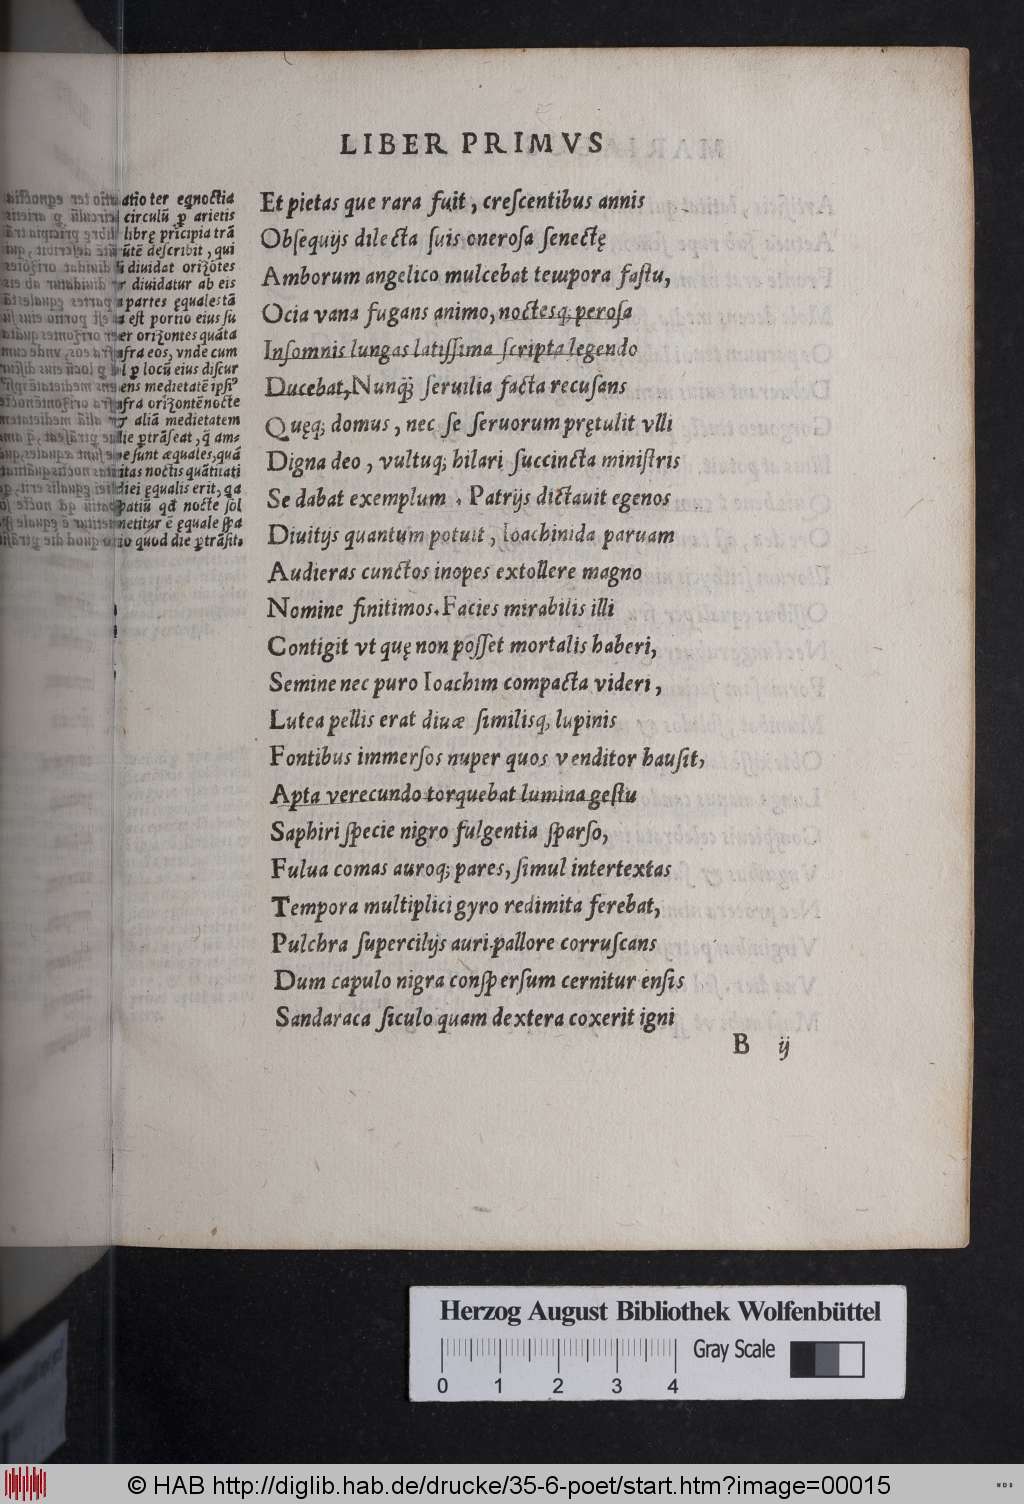 LIBER PRIMVS
atio ter eqnoctia
circulū ꝑ arietis
librę pricipia trā
ūtē describit, qui
diuidat orizōtes
r diuidatur ab eis
a partes ęqualestā
a est portio eius su
er orizontes quāta
fra eos, vnde cum
l ꝑ locū eius discur
ens medietatē ipsi
fra orizontē nocte
r aliā medietatem
lie ꝑtrāseat, q̄ am=
e sunt æquales, quā
itas noctis quātitati
diei ęqualis erit, qa
patiū qđ nocte sol
metitur ē ęquale spa
io quod die ꝑtrāsit.
Et pietas que rara fuit, crescentibus annis
Obsequijs dilecta suis onerosa senectę
Amborum angelico mulcebat tempora fastu,
Ocia vana fugans animo, noctesq; perosa
Insomnis lungas latissima scripta legendo
Ducebat, Nunq̄; seruilia facta recusans
Quęq; domus, nec se seruorum prętulit vlli
Digna deo, vultuq; hilari succincta ministris
Se dabat exemplum. Patrijs dictauit egenos
Diuitijs quantum potuit, Ioachinida paruam
Audieras cunctos inopes extollere magno
Nomine finitimos. Facies mirabilis illi
Contigit vt quę non posset mortalis haberi,
Semine nec puro Ioachim compacta videri,
Lutea pellis erat diuæ similisq; lupinis
Fontibus immersos nuper quos venditor hausit,
Apta verecundo torquebat lumina gestu
Saphiri specie nigro fulgentia sparso,
Fulua comas auroq; pares, simul intertextas
Tempora multiplici gyro redimita ferebat,
Pulchra supercilijs auri pallore corruscans
Dum capulo nigra conspersum cernitur ensis
Sandaraca siculo quam dextera coxerit igni
B ij
Herzog August Bibliothek Wolfenbüttel
Gray Scale
0 1 2 3 4
© HAB http://diglib.hab.de/drucke/35-6-poet/start.htm?image=00015